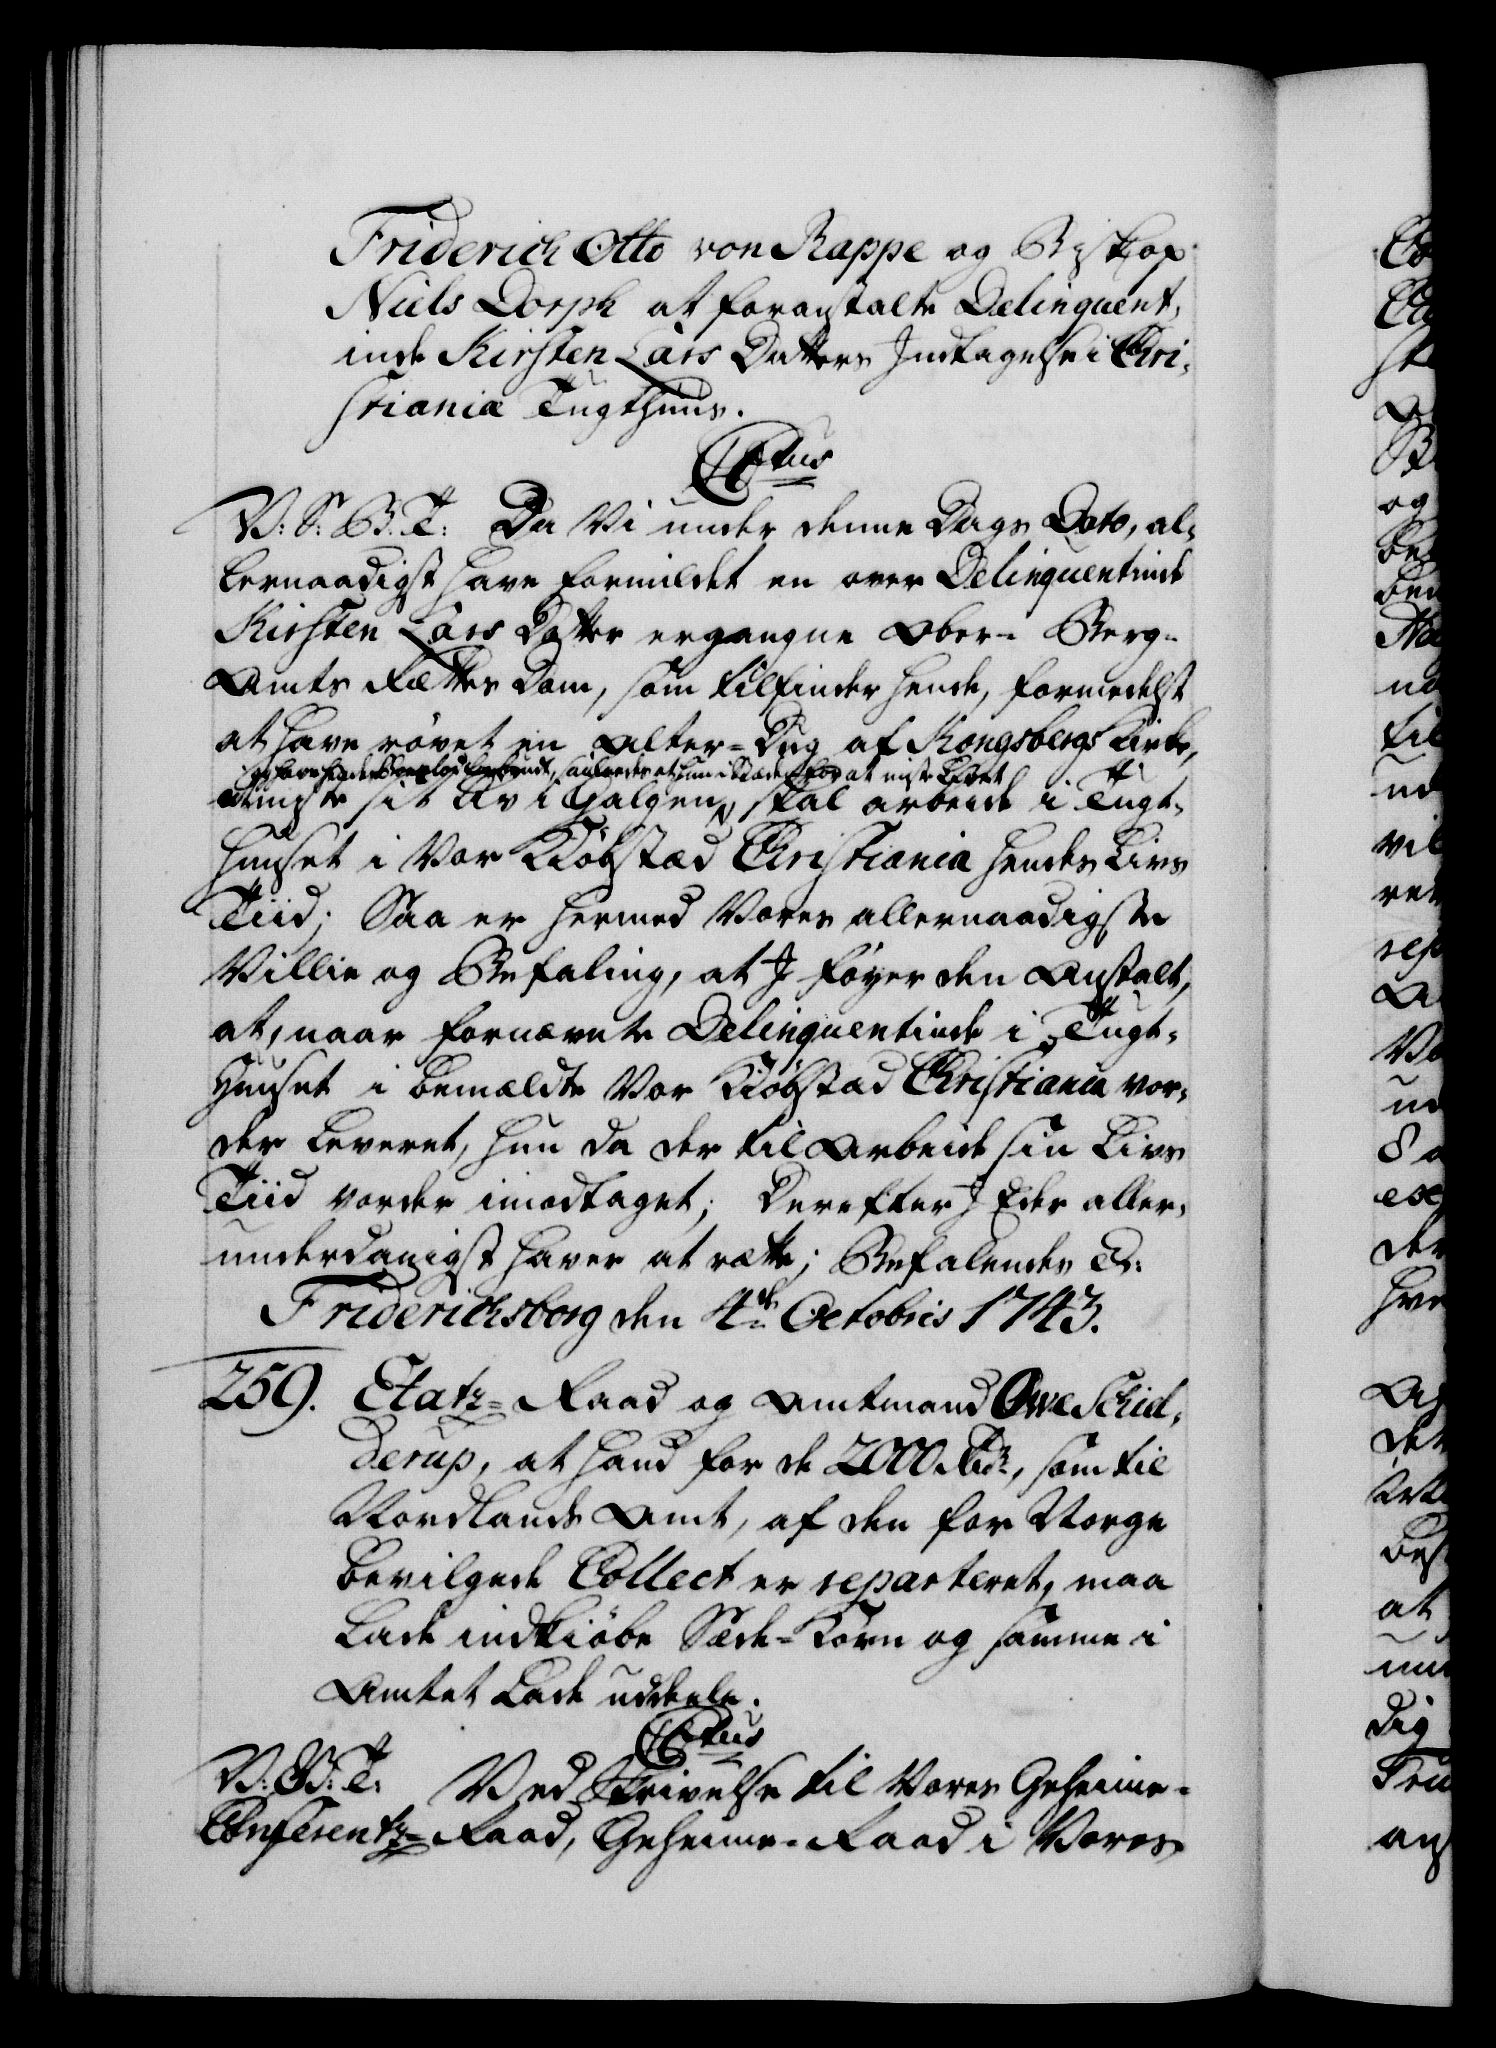 Friderich Otto von Rappe og Biskop
Niels Dorph at foranstalte Delinquent,
inde Kirsten Lars Datters Indtagelse i Chri,
stiania Tugthuus.
C6tus
V: S: B: T: Da Vi under denne Dags Dato, al,
lernaadigst have formildet en over Delinquentinde
Kirsten Lars Datter ergangne Ober- Berg-
Amts Rættes Dom, som tilfinder hende, formedelst
at have røvet en Alter-Dug af Kongsbergs Kirke,
saaledes at hun i Stæden for at miste Livet
at miste sit Liv i Galgen, skal arbeide i Tugt,
huuset i Vor Kiøbstæd Christiania hendes Livs
Tiid; Saa er hermed Vores allernaadigste
Villie og Befaling, at I føyer den Anstalt,
at, naar fornævnte Delinquentinde i Tugt,
Huuset i bemældte Vor Kiøbstæd Christiania vor,
der leveret, hun da der til Arbeide sin Livs
Tiid vorder imodtaget; Derefter I Eder aller,
underdanigst haver at rætte; Befalendes D:
Friderichsborg den 4de Octobris 1743.
259. Etatz-Raad og Amtmand Owe Schiel,
derup, at hand for de 2000 Rdr, som til
Nordlands Amt, af den for Norge
bevilgede Collect er reparteret, maa
lade indkiøbe Sæde-Korn og samme i
Amtet lade uddeele.
C6tus
V: G: T: Ved Skrivelse til Vores Geheime-
Conferentz-Raad, Geheime-Raad i Vores